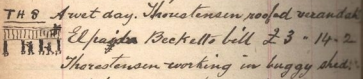 TH 8 A wet day. Thorestensen roofed verandah
El paid Becketts bill £3-14-2
Thorestensen working in buggy shed.